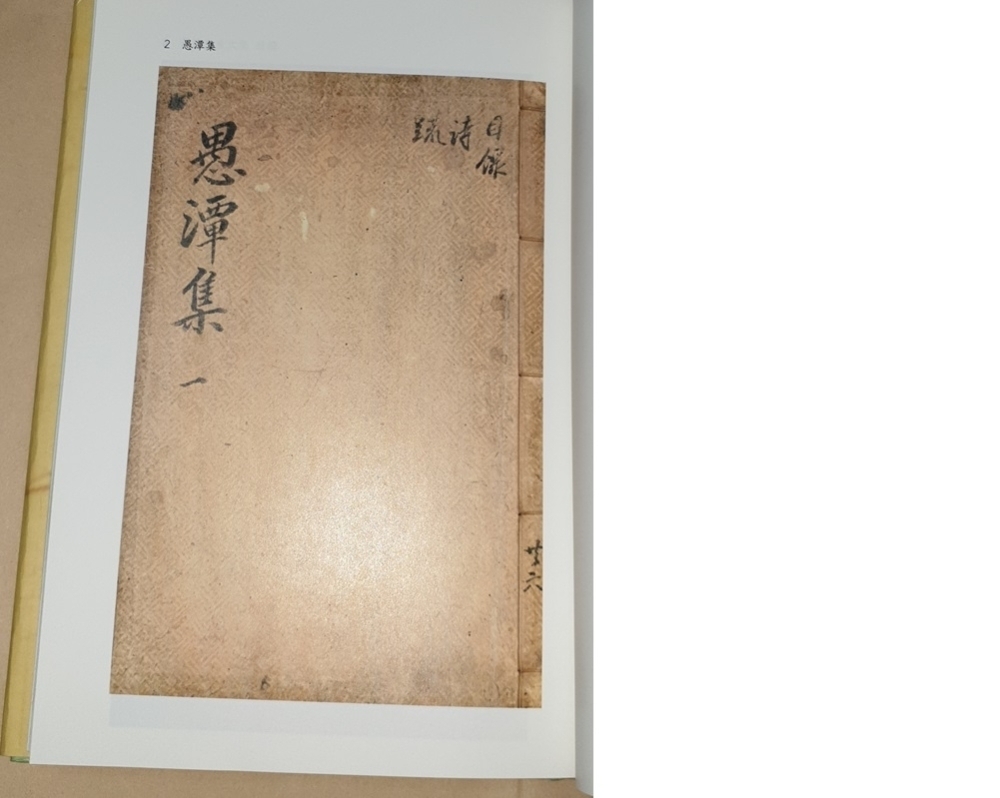 2 愚潭集
目錄
詩
疏
愚潭集 一
共六